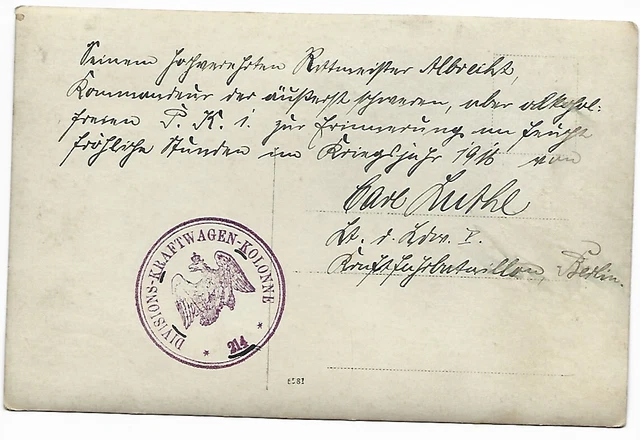 Seinem hochverehrten Rittmeister Albrecht,
Kommandeur der äußerst schweren, aber alkohol-
freien P. K. 1. zur Erinnerung an feucht
fröhliche Stunden im Kriegsjahr 1916 von
Carl
Lt. d. Ldw. I.
Kraftfahrbataillon, Berlin.
DIVISIONS-KRAFTWAGEN-KOLONNE
* 214 *